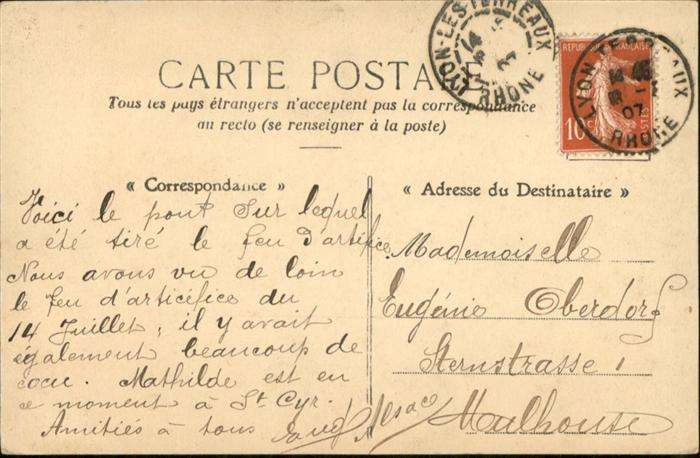 CARTE POSTALE
Tous les pays étrangers n'acceptent pas la correspondance
au recto (se renseigner à la poste)
LYON-LES-TERREAUX
RHONE
07
REPUBLIQUE FRANÇAISE
10
POSTES
LYON TERREAUX
07
RHONE
« Correspondance »
Voici le pont sur lequel
a été tiré le feu d'artifice.
Nous avons vu de loin
le feu d'articéfice du
14 Juillet, il y avait
également beaucoup de
Mathilde est en
ce moment à St Cyr.
Amitiés à tous
« Adresse du Destinataire »
Mademoiselle
Eugénie Oberdorf
Sternstrasse 1
Mulhouse
Alsace